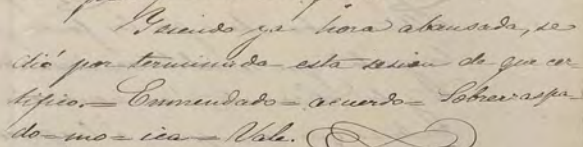 Y siendo ya hora abansada, se
dió por terminada esta sesion de que cer-
tifico.= Enmendado = acuerdo = Sobrer-aspa-
do = mo = ica = Vale.